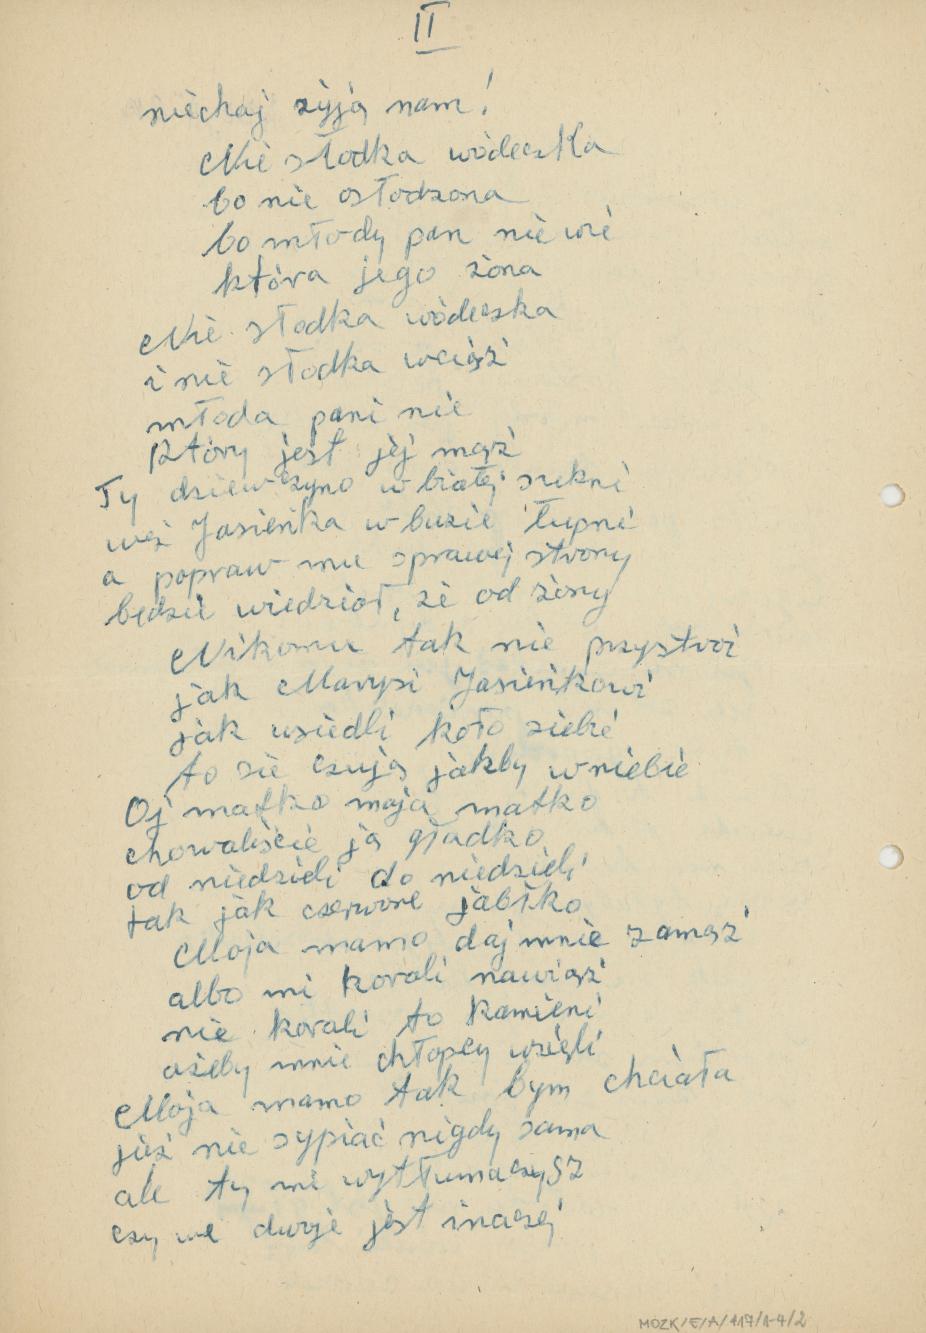 II
niechaj żyją nam!
Nie słodka wódeczka
bo nie osłodzona
bo młody pan nie wie
która jego żona
Nie słodka wódeczka
i nie słodka wciąż
młoda pani nie
który jest jej mąż
Ty dziewczyno w białej sukni
weź Jasieńka w buzie łupni
a popraw mu z prawej strony
będzie wiedzioł, że od żony
Nikomu tak nie przystoi
jak Marysi Jasieńkowi
jak usiedli koło siebie
to sie czują jakby w niebie
Oj matko moja matko
chowaliście ją gładko
od niedzieli do niedzieli
tak jak czerwone jabłko
Moja mamo daj mnie zamąż
albo mi korali nawiąż
nie korali to kamieni
ażeby mnie chłopcy wzięli
Moja mamo tak bym chciała
już nie sypiać nigdy sama
ale ty mi wytłumaczysz
czy we dwoje jest inaczej
MOZK/E/A/417/1-4/2